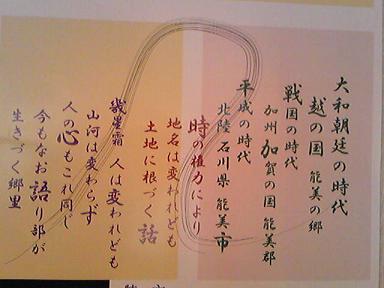 大和朝廷の時代
越の国 能美の郷
戦国の時代
加州 加賀の国 能美郡
平成の時代
北陸 石川県 能美市
時の権力により
地名は変われども
土地に根づく話
幾星霜 人は変われども
山河は変わらず
人の心もこれ同じ
今もなお語り部が
生きづく郷里